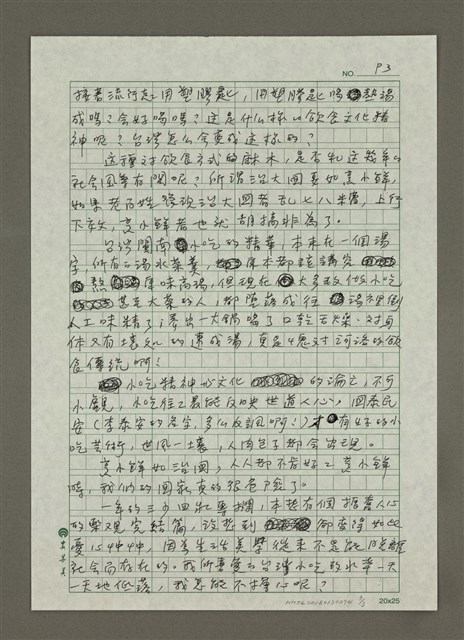 NO. P3
接著流行起用塑膠匙,用塑膠匙喝熱湯
成嗎?會好喝嗎?這是什么樣的飲食文化精
神呢?台灣怎么会變成這樣的?
這種對飲食方式的麻木,是否和這幾年的
社会風氣有關呢?所謂治大國真如烹小鮮,
如果老百姓發現治大國者亂七八糟,上行
下效,烹小鮮者也就胡搞非為了。
台灣閩南小吃的精華,本來在一個湯
字,所有的湯水菜羹,原本都講究
熬原味高湯,但現在大多數做小吃
甚至大菜的人,都墮落成往湯裡倒
人工味精了,湊出一大鍋喝了口乾舌燥、对身
体又有土匁的速成湯,更是4愧对河洛的飲
食傳統啊!
小吃精神和文化的論定,不可
小觀,小吃往往最能反映世道人心,國泰民
安(李泰安的泰安,多么反諷啊!)才有好的小
吃芸術,世風一壤,人肉包子都会出現。
烹小鮮如治國,人人都不肯好好烹小鮮
時,我們的國家真的很危險了。
一年的三少四壯專欄,本想有個振奮人心
的歡見完結篇,沒想到卻寫得如此
憂心忡忡,因為生活美學從來不是能脫離
社会而存在的。我所喜愛的台灣小吃的水準一天
一天地低落,我怎能不擔心呢?
20x25